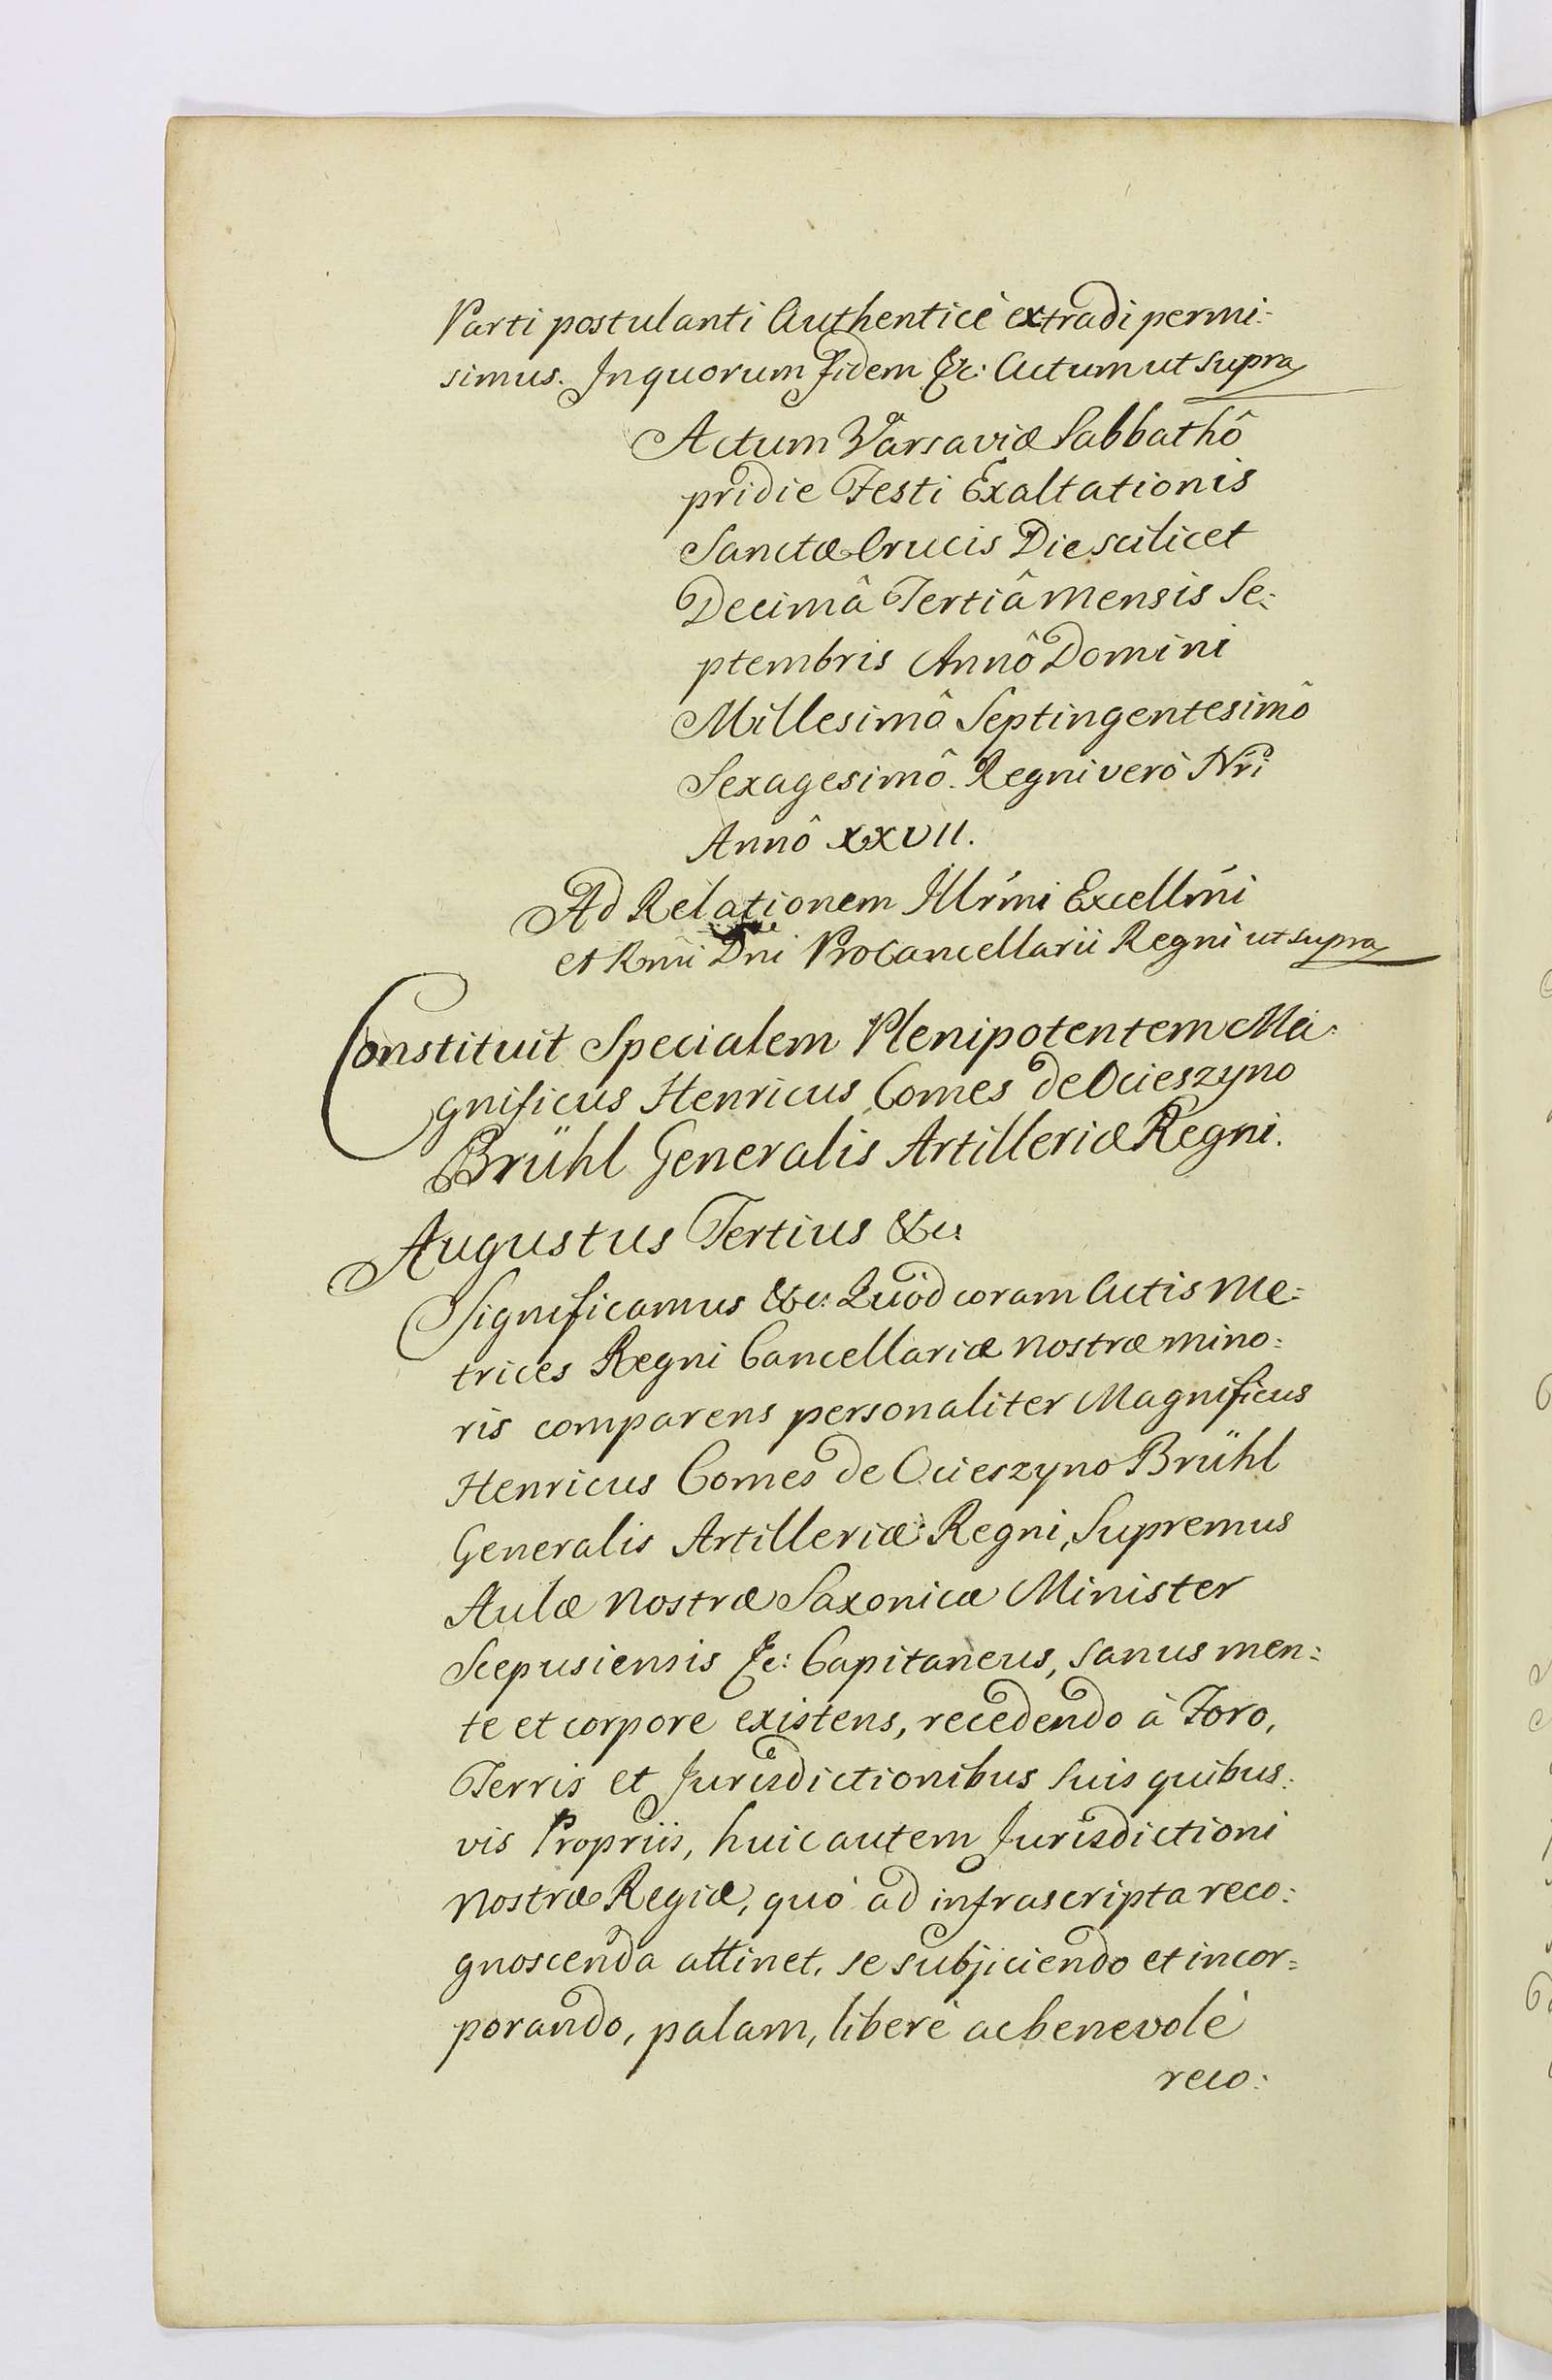 Parti postulanti Authenticè extradi permi:
simus. In quorum fidem &c: Actum ut supra
Actum Varsaviæ Sabbathô
pridie Festi Exaltationis
Sanctæ Crucis Die scilicet
Decimâ Tertiâ mensis Se:
ptembris Annô Domini
Millesimô Septingentesimô
Sexagesimô. Regni verò Nri
Annô XXVII.
Ad Relationem Illrmi Excellmi
et Rmi Dni Procancellarii Regni ut supra
Constituit Specialem Plenipotentem Ma:
gnificus Henricus Comes de Ocieszyno
Brühl Generalis Artilleriæ Regni.
Augustus Tertius &c:
Significamus &c: Quòd coram Actis Me:
trices Regni Cancellariæ nostræ mino:
ris comparens personaliter Magnificus
Henricus Comes de Ocieszyno Brühl
Generalis Artilleriæ Regni, Supremus
Aulæ nostræ Saxonicæ Minister
Scepusiensis &c: Capitaneus, sanus men:
te et corpore existens, recedendo à Foro,
Terris et Jurisdictionibus suis quibus:
vis Propriis, huic autem Jurisdictioni
nostræ Regiæ, quó ad infrascripta reco:
gnoscenda attinet, se subjiciendo et incor:
porando, palam, liberè ac benevolè
reco: